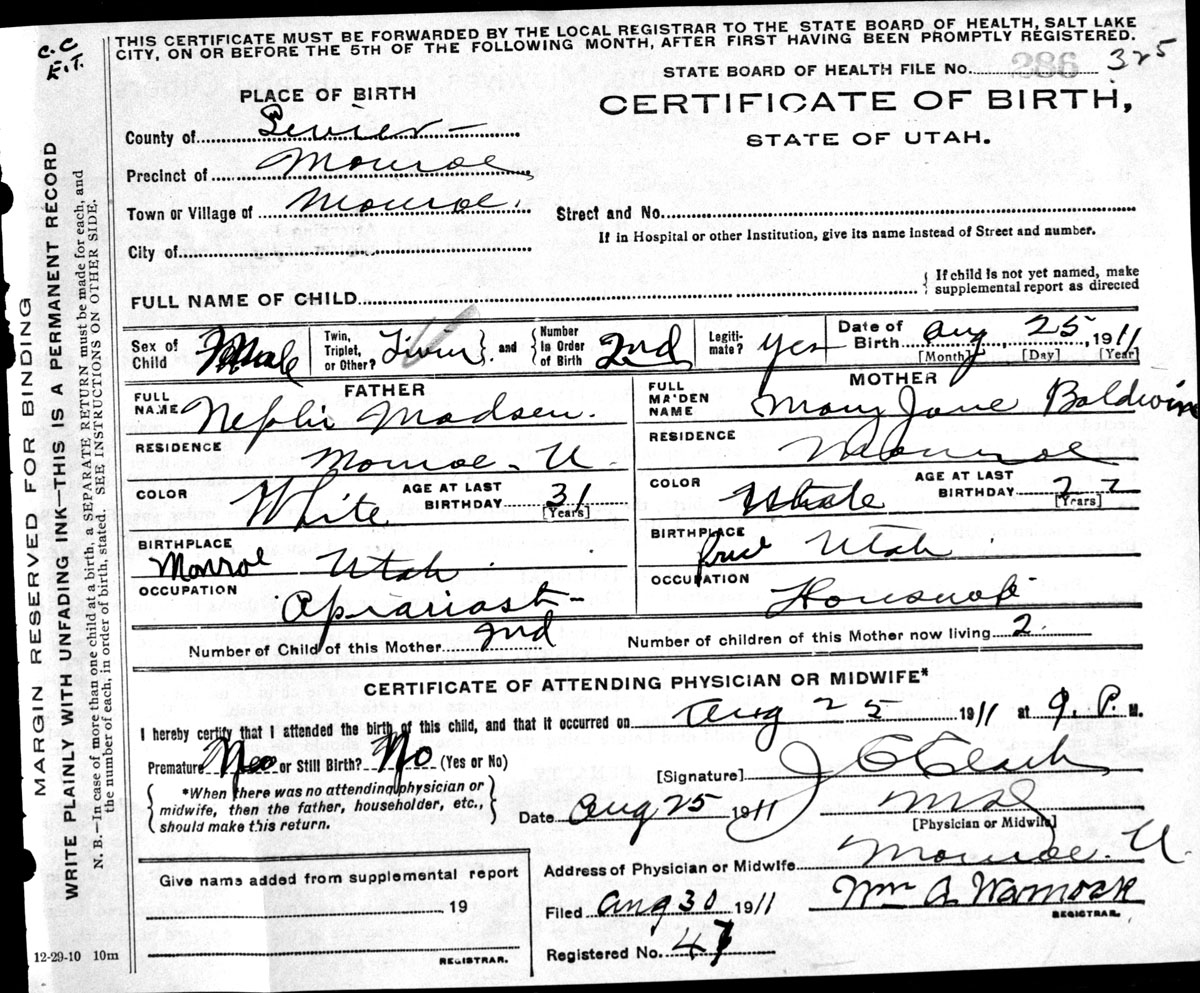 C.C
F.T.
THIS CERTIFICATE MUST BE FORWARDED BY THE LOCAL REGISTRAR TO THE STATE BOARD OF HEALTH, SALT LAKE
CITY, ON OR BEFORE THE 5TH OF THE FOLLOWING MONTH, AFTER FIRST HAVING BEEN PROMPTLY REGISTERED.
STATE BOARD OF HEALTH FILE No. 286 325
PLACE OF BIRTH
CERTIFICATE OF BIRTH,
STATE OF UTAH.
County of Sevier
Precinct of Monroe
Town or Village of Monroe.
Street and No.
If in Hospital or other Institution, give its name instead of Street and number.
City of
FULL NAME OF CHILD { If child is not yet named, make
supplemental report as directed
Sex of Child Female
Twin, Triplet, or Other? Twin } and { Number In Order of Birth 2nd
Legiti-mate? Yes
Date of Birth Aug 25, 1911
[Month] [Day] [Year]
FATHER
FULL NAME Nephi Madsen.
RESIDENCE Monroe - U.
COLOR White AGE AT LAST BIRTHDAY 31
[Years]
BIRTHPLACE Monroe Utah
OCCUPATION Apiariast
MOTHER
FULL MAIDEN NAME Mary Jane Baldwin
RESIDENCE Monroe
COLOR White AGE AT LAST BIRTHDAY 27
[Years]
BIRTHPLACE Price Utah
OCCUPATION
Number of Child of this Mother 2nd Number of children of this Mother now living 2.
CERTIFICATE OF ATTENDING PHYSICIAN OR MIDWIFE*
I hereby certify that I attended the birth of this child, and that it occurred on Aug 25 1911 at 9. P. M.
Premature or Still Birth? No (Yes or No)
{ *When there was no attending physician or
midwife, then the father, householder, etc.,
should make this return. }
[Signature] J C Clark
Date Aug 25 1911
[Physician or Midwife]
Address of Physician or Midwife Monroe. U.
Give name added from supplemental report
19
REGISTRAR.
Filed Aug 30 1911 Wm A Warnock
REGISTRAR.
Registered No. 47
12-29-10 10m
MARGIN RESERVED FOR BINDING
WRITE PLAINLY WITH UNFADING INK—THIS IS A PERMANENT RECORD
N. B.—In case of more than one child at a birth, a SEPARATE RETURN must be made for each, and
the number of each, in order of birth, stated. SEE INSTRUCTIONS ON OTHER SIDE.